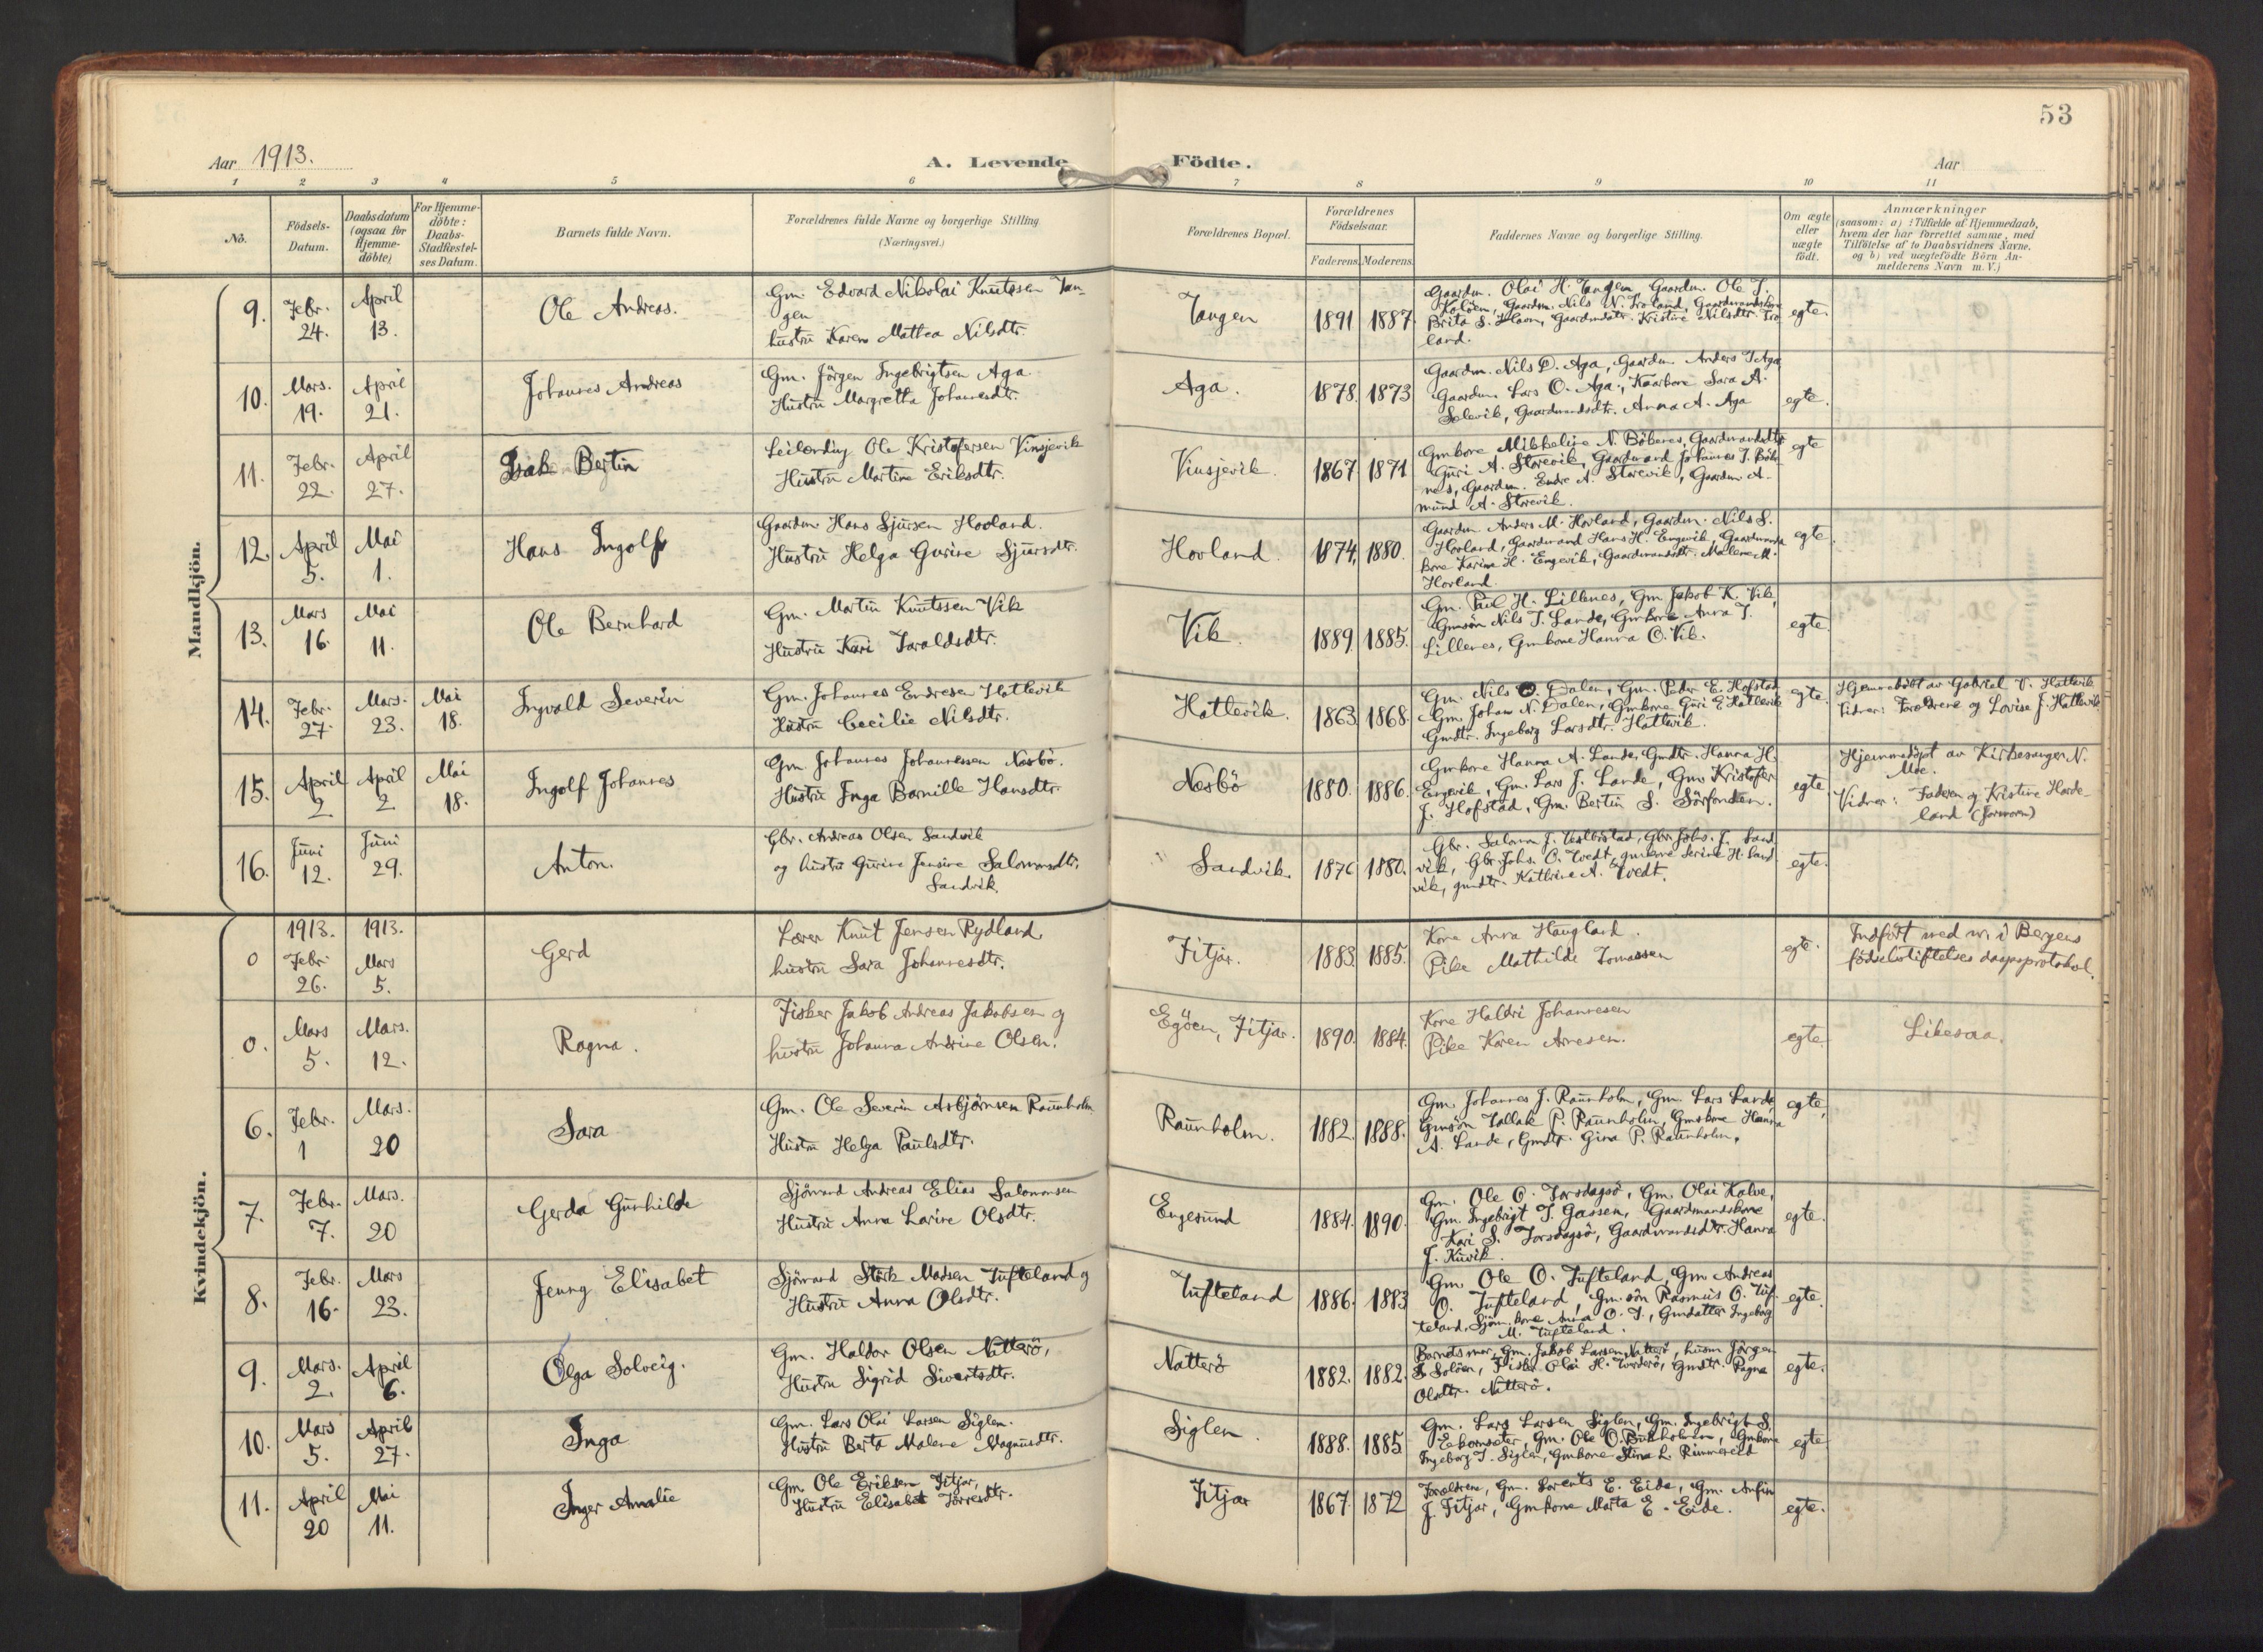 53
Aar 1913.
A. Levende Födte.
Aar
1 2 3 4 5 6 7 8 9 10 11
No.
Födsels-
Datum.
Daabsdatum
(ogsaa for
Hjemme-
döbte)
For Hjemme-
döbte:
Daabs-
Stadfæstel-
ses Datum.
Barnets fulde Navn.
Forældrenes fulde Navne og borgerlige Stilling
(Næringsvei.)
Forældrenes Bopæl.
Forældrenes
Födselsaar.
Faderens Moderens.
Faddernes Navne og borgerlige Stilling.
Om ægte
eller
uægte
födt.
Anmærkninger
(saasom: a) i Tilfælde af Hjemmedaab,
hvem der har forrettet samme, med
Tilföielse af to Daabsvidners Navne.
og b) ved uægtefödte Börn An-
melderens Navn m. V.)
Mandkjön.
9. Febr. 24. April 13.
Ole Andreas.
Gm. Edvard Nikolai Knutssen Tan-
gen
hustru Karen Mathea Nilsdtr.
Tangen
1891 1887.
Gaardm. Olai H. Tangen, Gaardm. Ole J.
Gaardm. Nils N. Troland, Gaardmandskone
Brita S. Havn, Gaardmdatr. Kristine Nilsdtr. Tro
land.
egte.
10. Mars. 19. April 21.
Johannes Andreas
Gm. Jörgen Ingebrigtsen Aga
Hustru Margretha Johannesdtr.
Aga.
1878. 1873
Gaardm. Nils D. Aga, Gaardm. Anders J Aga
Gaardm. Lars O. Aga, Kaarkone Sara A.
Selevik, Gaardmandsdtr. Anna A. Aga
egte.
11. Febr. 22. April 27.
Isak Bertin
Leilending Ole Kristofersen Vinsjevik
Hustru Martine Eriksdtr.
Vinsjevik.
1867 1871
Gmkone Mikkeline N. Böbenes, Gaardmandsdtr
Guri A. Storevik, Gaardmand Johannes J. Böbe-
nes, Gaardm. Endre A. Storevik, Gaardm A-
mund A. Storevik.
egte
12. April 5. Mai 1.
Hans Ingolf
Gaardm. Hans Sjursen Hovland.
Hustru Helga Gurine Sjursdtr.
Hovland.
1874. 1880.
Gaardm Anders M. Hovland, Gaardm. Nils S.
Hovland, Gaardmand Hans H. Engevik, Gaardmands
kone Karina H. Engevik, Gaardmandsdtr. Malene M.
Hovland.
egte.
13. Mars 16. Mai 11.
Ole Bernhard
Gm. Martin Knutssen Vik
Hustru Kari Toraldsdtr.
Vik.
1889. 1885.
Gm. Paul H. Lillenes, Gm Jakob K. Vik,
Gmsön Nils T. Lande, Gmkone Anna T.
Lillenes, Gmkone Hanna O. Vik.
egte.
14. Febr. 27. Mars. 23. Mai 18.
Ingvald Severin
Gm. Johannes Endresen Hatlevik
Hustru Cecilie Nilsdtr.
Hatlevik.
1863 1868.
Gm. Nils O. Dalen, Gm. Peder E. Hofstad
Gm. Johan N. Dalen, Gmkone Guri E Hatlevik
Gmdtr. Ingeborg Larsdtr. Hatlevik.
egte.
Hjemmedöbt av Gabriel V. Hatlevik
Vidner: Foreldrene og Lovise J. Hatlevik
15. April 2 April 2 Mai 18.
Ingolf Johannes
Gm. Johannes Johannessen Nesbö.
Hustru Inga Barnille Hansdtr.
Nesbö
1880. 1886.
Gmkone Hanna A. Lande, Gmdtr. Hanna H.
Engevik, Gm. Lars J. Lande, Gm. Kristofer
J. Hofstad, Gm. Bertin S. Sörfonden.
egte
Hjemmedöpt av Kirkesanger N.
Moe.
Vidner: Faderen og Kristine Harde-
land (Jormoren)
16. Juni 12. Juni 29.
Anton.
Gbr. Andreas Olsen Sandvik
og hustru Gurine Jensine Salomonsdtr,
Sandvik.
Sandvik.
1876 1880.
Gbr. Salamon J. Gbr. Johs. J. Sand
vik, Gbr. Johs. O. Tvedt, gmkone Serine H. Sand
vik, gmdtr. Kathrine A. Tvedt.
egte.
Kvindekjön.
0 1913. Febr. 26. 1913. Mars 5.
Gerd
Lærer Knut Jensen Rydland,
hustru Sara Johannesdtr.
Fitjar.
1883 1885.
Kone Anna Haugland.
Pike Mathilde Tomassen
egte.
Indfört med nr. i Bergens
födselsstiftelses daapsprotokol.
0. Mars 5. Mars. 12.
Ragna.
Fisker Jakob Andreas Jakobsen og
hustru Johanna Andrine Olsen.
Egöen, Fitjar.
1890. 1884.
Kone Haldri Johannesen
Pike Karen Arnesen.
egte.
Likesaa.
6. Febr. 1 Mars. 20
Sara
Gm. Ole Severin Asbjörnsen Raunholm
Hustru Helga Paulsdtr.
Raunholm.
1882. 1888.
Gm. Johannes J. Raunholm, Gm. Lars Lande,
Gmsön Tollak P. Raunholm, Gmskone Hanna
A. Lande, Gmdtr. Gina P. Raunholm.
egte,
7. Febr. 7. Mars. 20
Gerda Gunhilde
Sjömand Andreas Elias Salomonsen
Hustru Anna Larine Olsdtr.
Engesund
1884. 1890.
Gm. Ole O. Torsdagsö, Gm. Olai Kalve,
Gm. Ingebrigt T. Gaasen, Gaardmandskone
Kari S. Torsdagsö, Gaardmandsdtr. Hanna
J. Kuvik.
egte.
8. Febr. 16. Mars 23.
Jenny Elisabet
Sjömand Störk Madsen Tufteland og
Hustru Anna Olsdtr.
Tufteland
1886. 1883
Gm. Ole O. Tufteland, Gm Andreas
O. Tufteland, Gm.sön Rasmus O. Tuf-
teland, Sjöm.kone Anna O. T., Gmdatter Ingeborg
M. Tufteland.
egte.
9. Mars. 2. April 6.
Olga Solveig.
Gm. Haldor Olsen Natterö,
Hustru Sigrid Sivertsdtr.
Natterö
1882. 1882.
Barnets mor, Gm. Jakob Larsen Natterö, husm Jörgen
J. Solöen, Fisker Olai H. Tverderö, Gmdtr. Ragna
Olsdtr. Natterö.
egte.
10. Mars 5. April 27.
Inga
Gm. Lars Olai Larsen Siglen.
Hustru Berta Malene Magnusdtr.
Siglen.
1888. 1885
Gm. Lars Larsen Siglen, Gm. Ingebrigt S.
Ekornseter, Gm. Ole O. Bukholmen, Gmkone
Ingeborg T. Siglen, Gmkone Stina L. Rimmereid
egte
11. April 20 Mai 11.
Inger Amalie
Gm. Ole Eriksen Fitjar,
Hustru Elisabet Törresdtr.
Fitjar
1867. 1872
Foreldrene, Gm. Lorents E. Eide, Gm. Anfin
J. Fitjar, Gmkone Marta E. Eide.
egte.